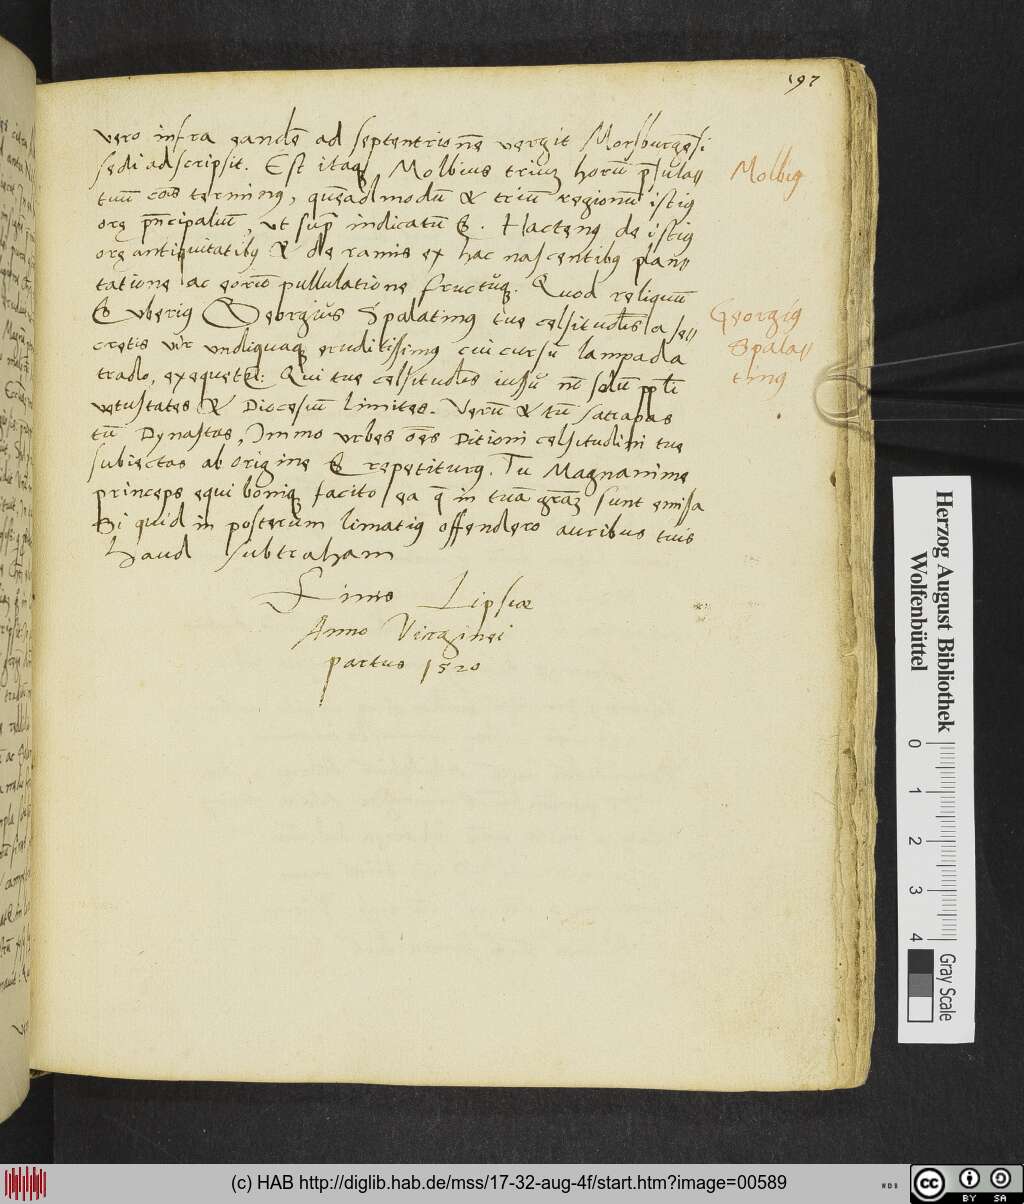 197
vero infra eandē ad septentrionē vergit Morsburgēsi
sedi adscripsit. Est itaq̨ Molbius triuꝫ horū p̄sula⸗
tuū cōis terminꝯ, quēadmodū & triū regionū istiꝯ
orę prīcipaliū, ut supͣ indicatū ē. Hactenꝯ de istiꝯ
orę antiquitatibꝯ & de ramis ex hac nascentibꝯ plan⸗
tatione ac eorū pullulatione fructuūq̨. Quod reliquū
ē uberiꝯ Georgiꝯ Spalatinꝯ tue celsitudīs a se⸗
cretis vir undiquaq̨ eruditissimꝯ cui cursū lampada
trado, exequetr̄: Qui tue celsitudīs iussu nō solū
vetustates & Diocesiū limites. Verū & tū satrapas
tū Dynastas, Immo urbes ōes Ditioni celsitudini tue
subiectas ab origine ē repetiturꝯ. Tu Magnanime
princeps equi boniq̨ facito ea q̄ in tuā grāꝫ sunt emissa
Si quid in posterum limatiꝯ offendero auribus tuis
haud subtraham
Finis Lipsiæ
Anno Virginei
partus 1520
Molbiꝯ
Georgiꝯ
Spala⸗
tinꝯ
Herzog August Bibliothek
Wolfenbüttel
0 1 2 3 4
Gray Scale
(c) HAB http://diglib.hab.de/mss/17-32-aug-4f/start.htm?image=00589
WDB
cc BY SA